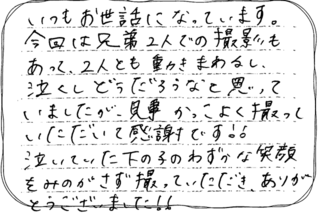 いつもお世話になっています。
今回は兄弟2人での撮影も
あって、2人とも動きまわるし、
泣くしどうだろうなと思って
いましたが、見事かっこよく撮って
いただいて感謝です!!
泣いていた下の子のわずかな笑顔
をみのがさず撮っていただき、ありが
とうございました!!